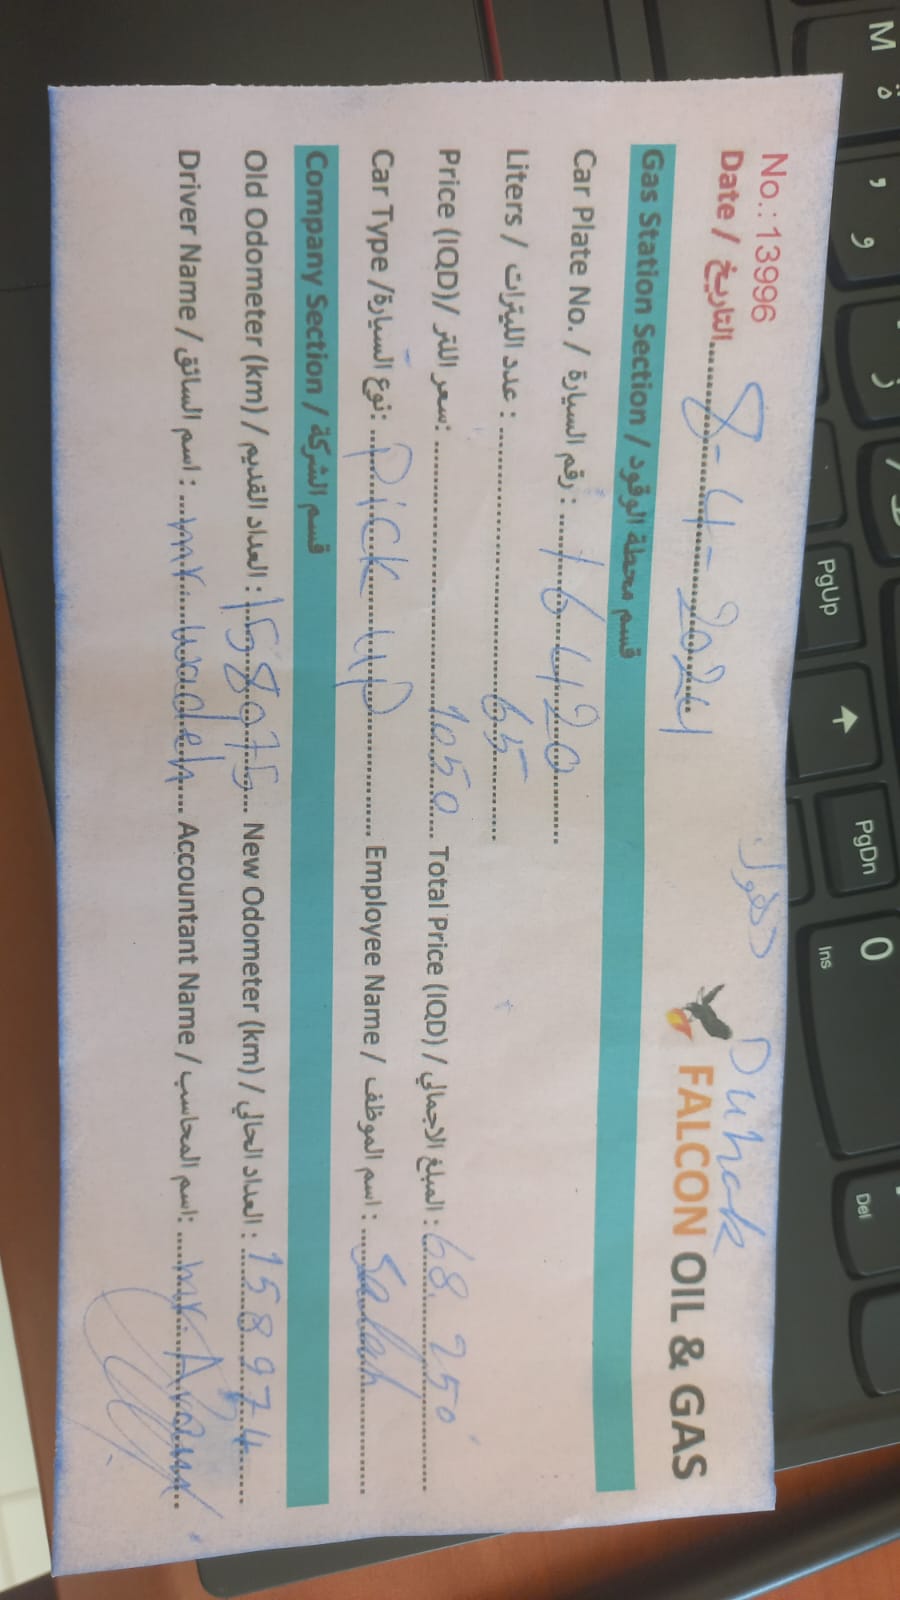 No.: 13996
دهوك Duhok
Date / التاريخ 8-4-2024
FALCON OIL & GAS
Gas Station Section / قسم محطة الوقود
Car Plate No. / رقم السيارة : 16420
Liters / عدد الليترات : 65
Price (IQD)/ سعر اللتر: 1050 Total Price (IQD) / المبلغ الاجمالي : 68.250
Car Type /نوع السيارة: Pick up Employee Name / اسم الموظف : Salah
Company Section / قسم الشركة
Old Odometer (km) / العداد القديم : New Odometer (km) / العداد الحالي :
Driver Name / اسم السائق : mr. Accountant Name / اسم المحاسب: mr.
M ة
, و
ز
PgUp
PgDn
0
Ins
Del